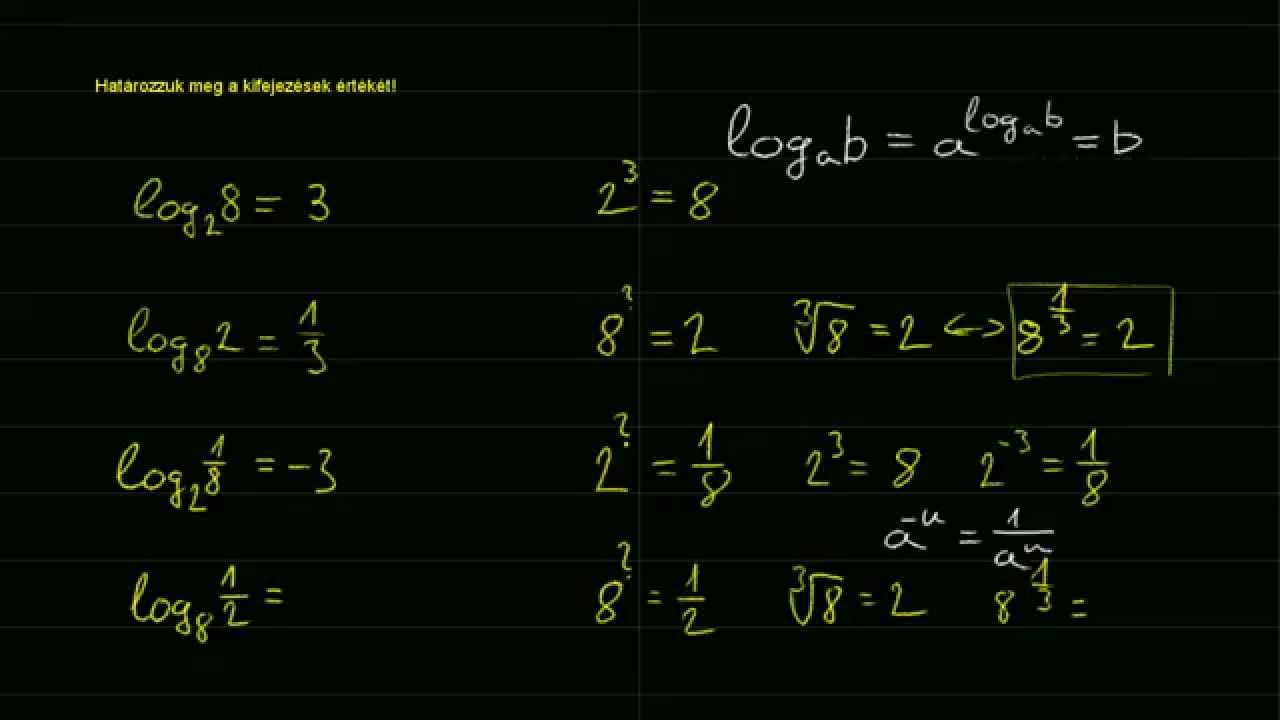 Határozzuk meg a kifejezések értékét!
log_a b = a^(log_a b) = b
log_2 8 = 3    2^3 = 8
log_8 2 = 1/3    8^? = 2    ∛8 = 2 <-> 8^(1/3) = 2
log_2 1/8 = -3    2^? = 1/8    2^3 = 8    2^-3 = 1/8
a^-n = 1/a^n
log_8 1/2 =    8^? = 1/2    ∛8 = 2    8^(1/3) =